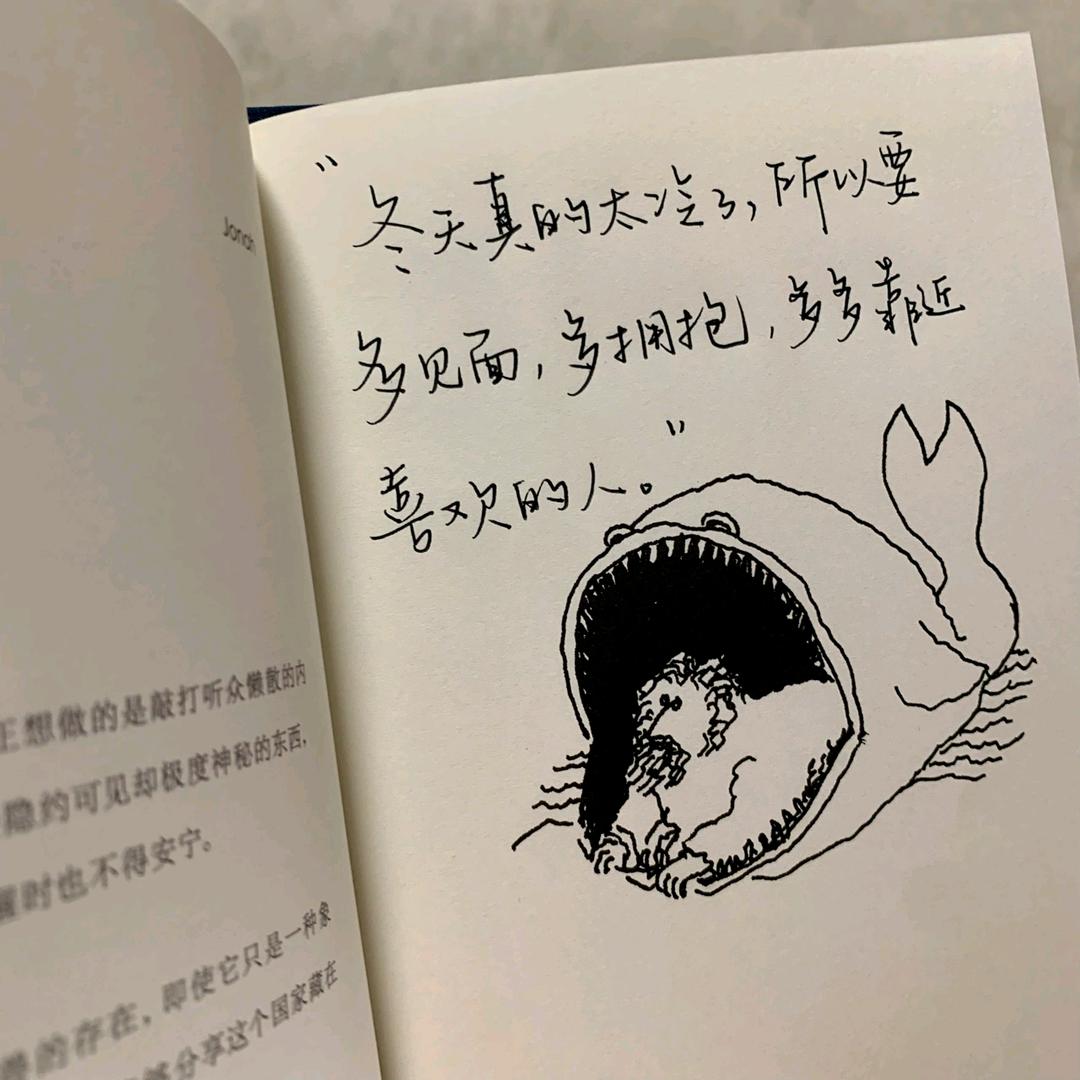 Jonah
正想做的是敲打听众懒散的内
隐约可见却极度神秘的东西,
醒时也不得安宁。
兽的存在，即使它只是一种象
分享这个国家藏在
"冬天真的太冷了,所以要
多见面,多拥抱,多多靠近
喜欢的人。"